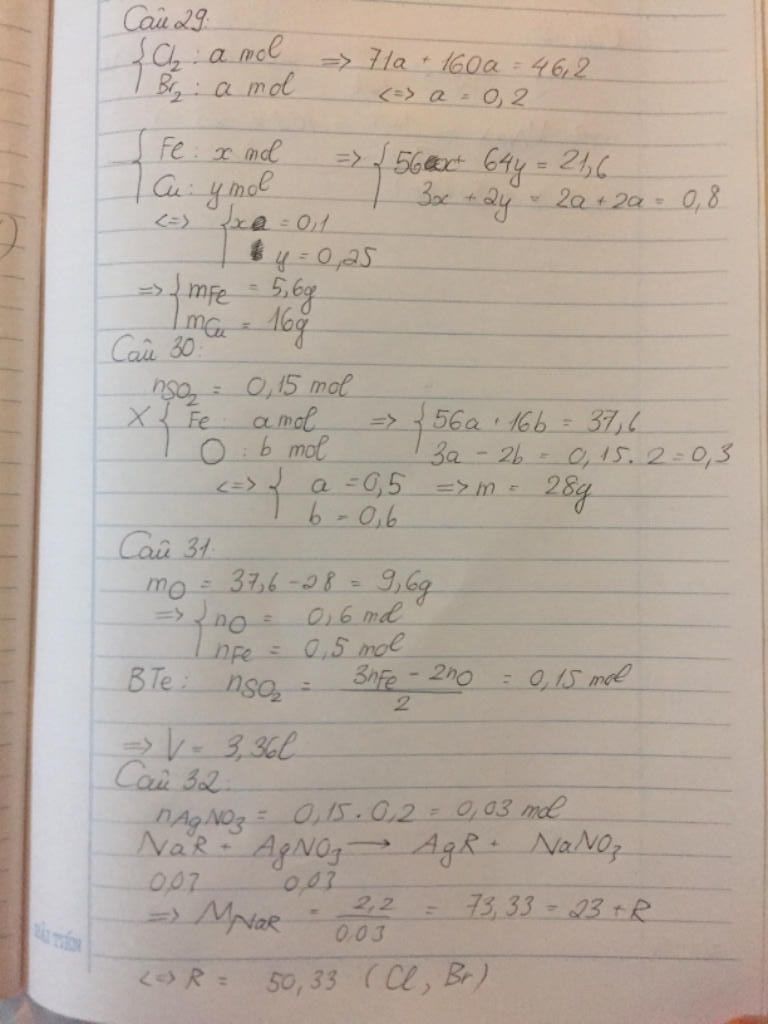 Câu 29:
Cl₂ : a mol => 71a + 160a = 46,2
Br₂ : a mol <=> a = 0,2
Fe : x mol => 56x + 64y = 21,6
Cu : y mol 3x + 2y = 2a + 2a = 0,8
<=> x = 0,1
y = 0,25
=> mFe = 5,6g
mCu = 16g
Câu 30:
nSO₂ = 0,15 mol
X Fe : a mol => 56a + 16b = 37,6
O : b mol 3a - 2b = 0,15.2 = 0,3
<=> a = 0,5 => m = 28g
b = 0,6
Câu 31:
mO = 37,6 - 28 = 9,6g
=> nO = 0,6 mol
nFe = 0,5 mol
BTe: nSO₂ = (3nFe - 2nO)/2 = 0,15 mol
=> V = 3,36l
Câu 32:
nAgNO₃ = 0,15.0,2 = 0,03 mol
NaR + AgNO₃ → AgR + NaNO₃
0,03 0,03
=> MNaR = 2,2/0,03 = 73,33 = 23 + R
<=> R = 50,33 (Cl, Br)